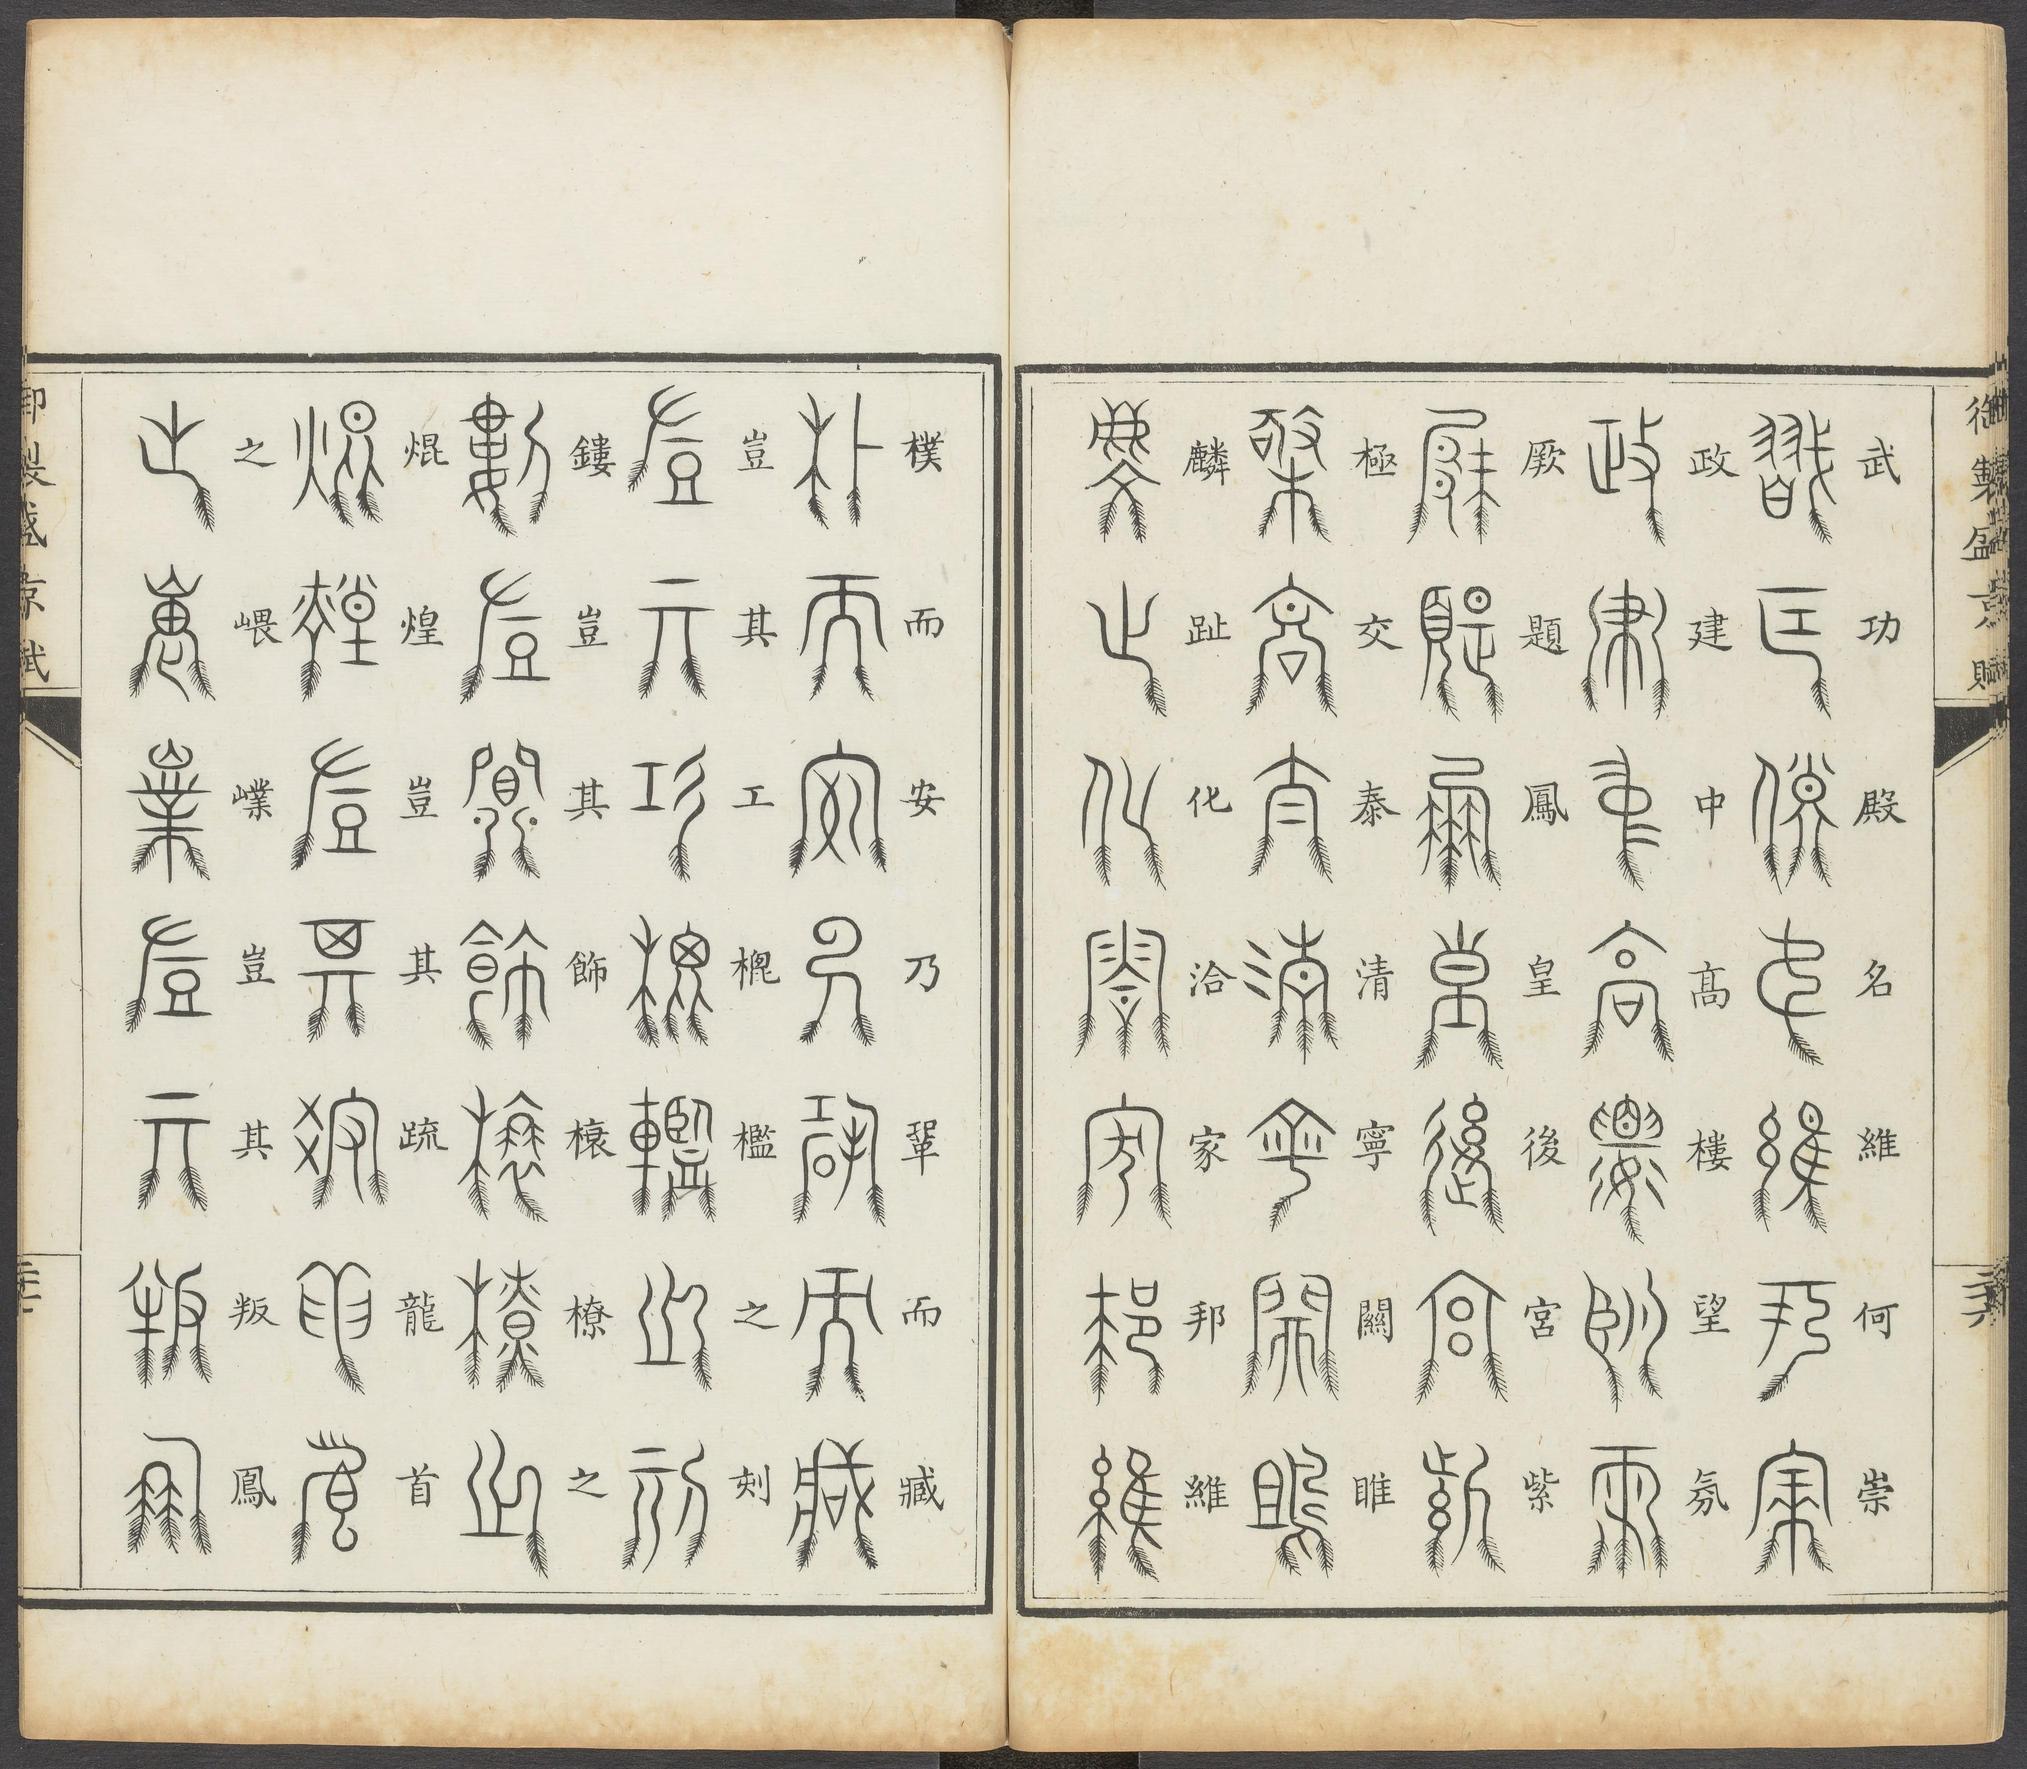 御製盛京賦
武功殿名維何崇
政建中高樓望氛
厥題鳳皇後宮紫
極交泰清寧關雎
麟趾化洽家邦維
三十六
樸而安乃鞏而臧
豈其工㮰檻之刻
鏤豈其飾榱橑之
焜煌豈其疏龍首
之㟪嶫豈其叛鳳
御製盛京賦